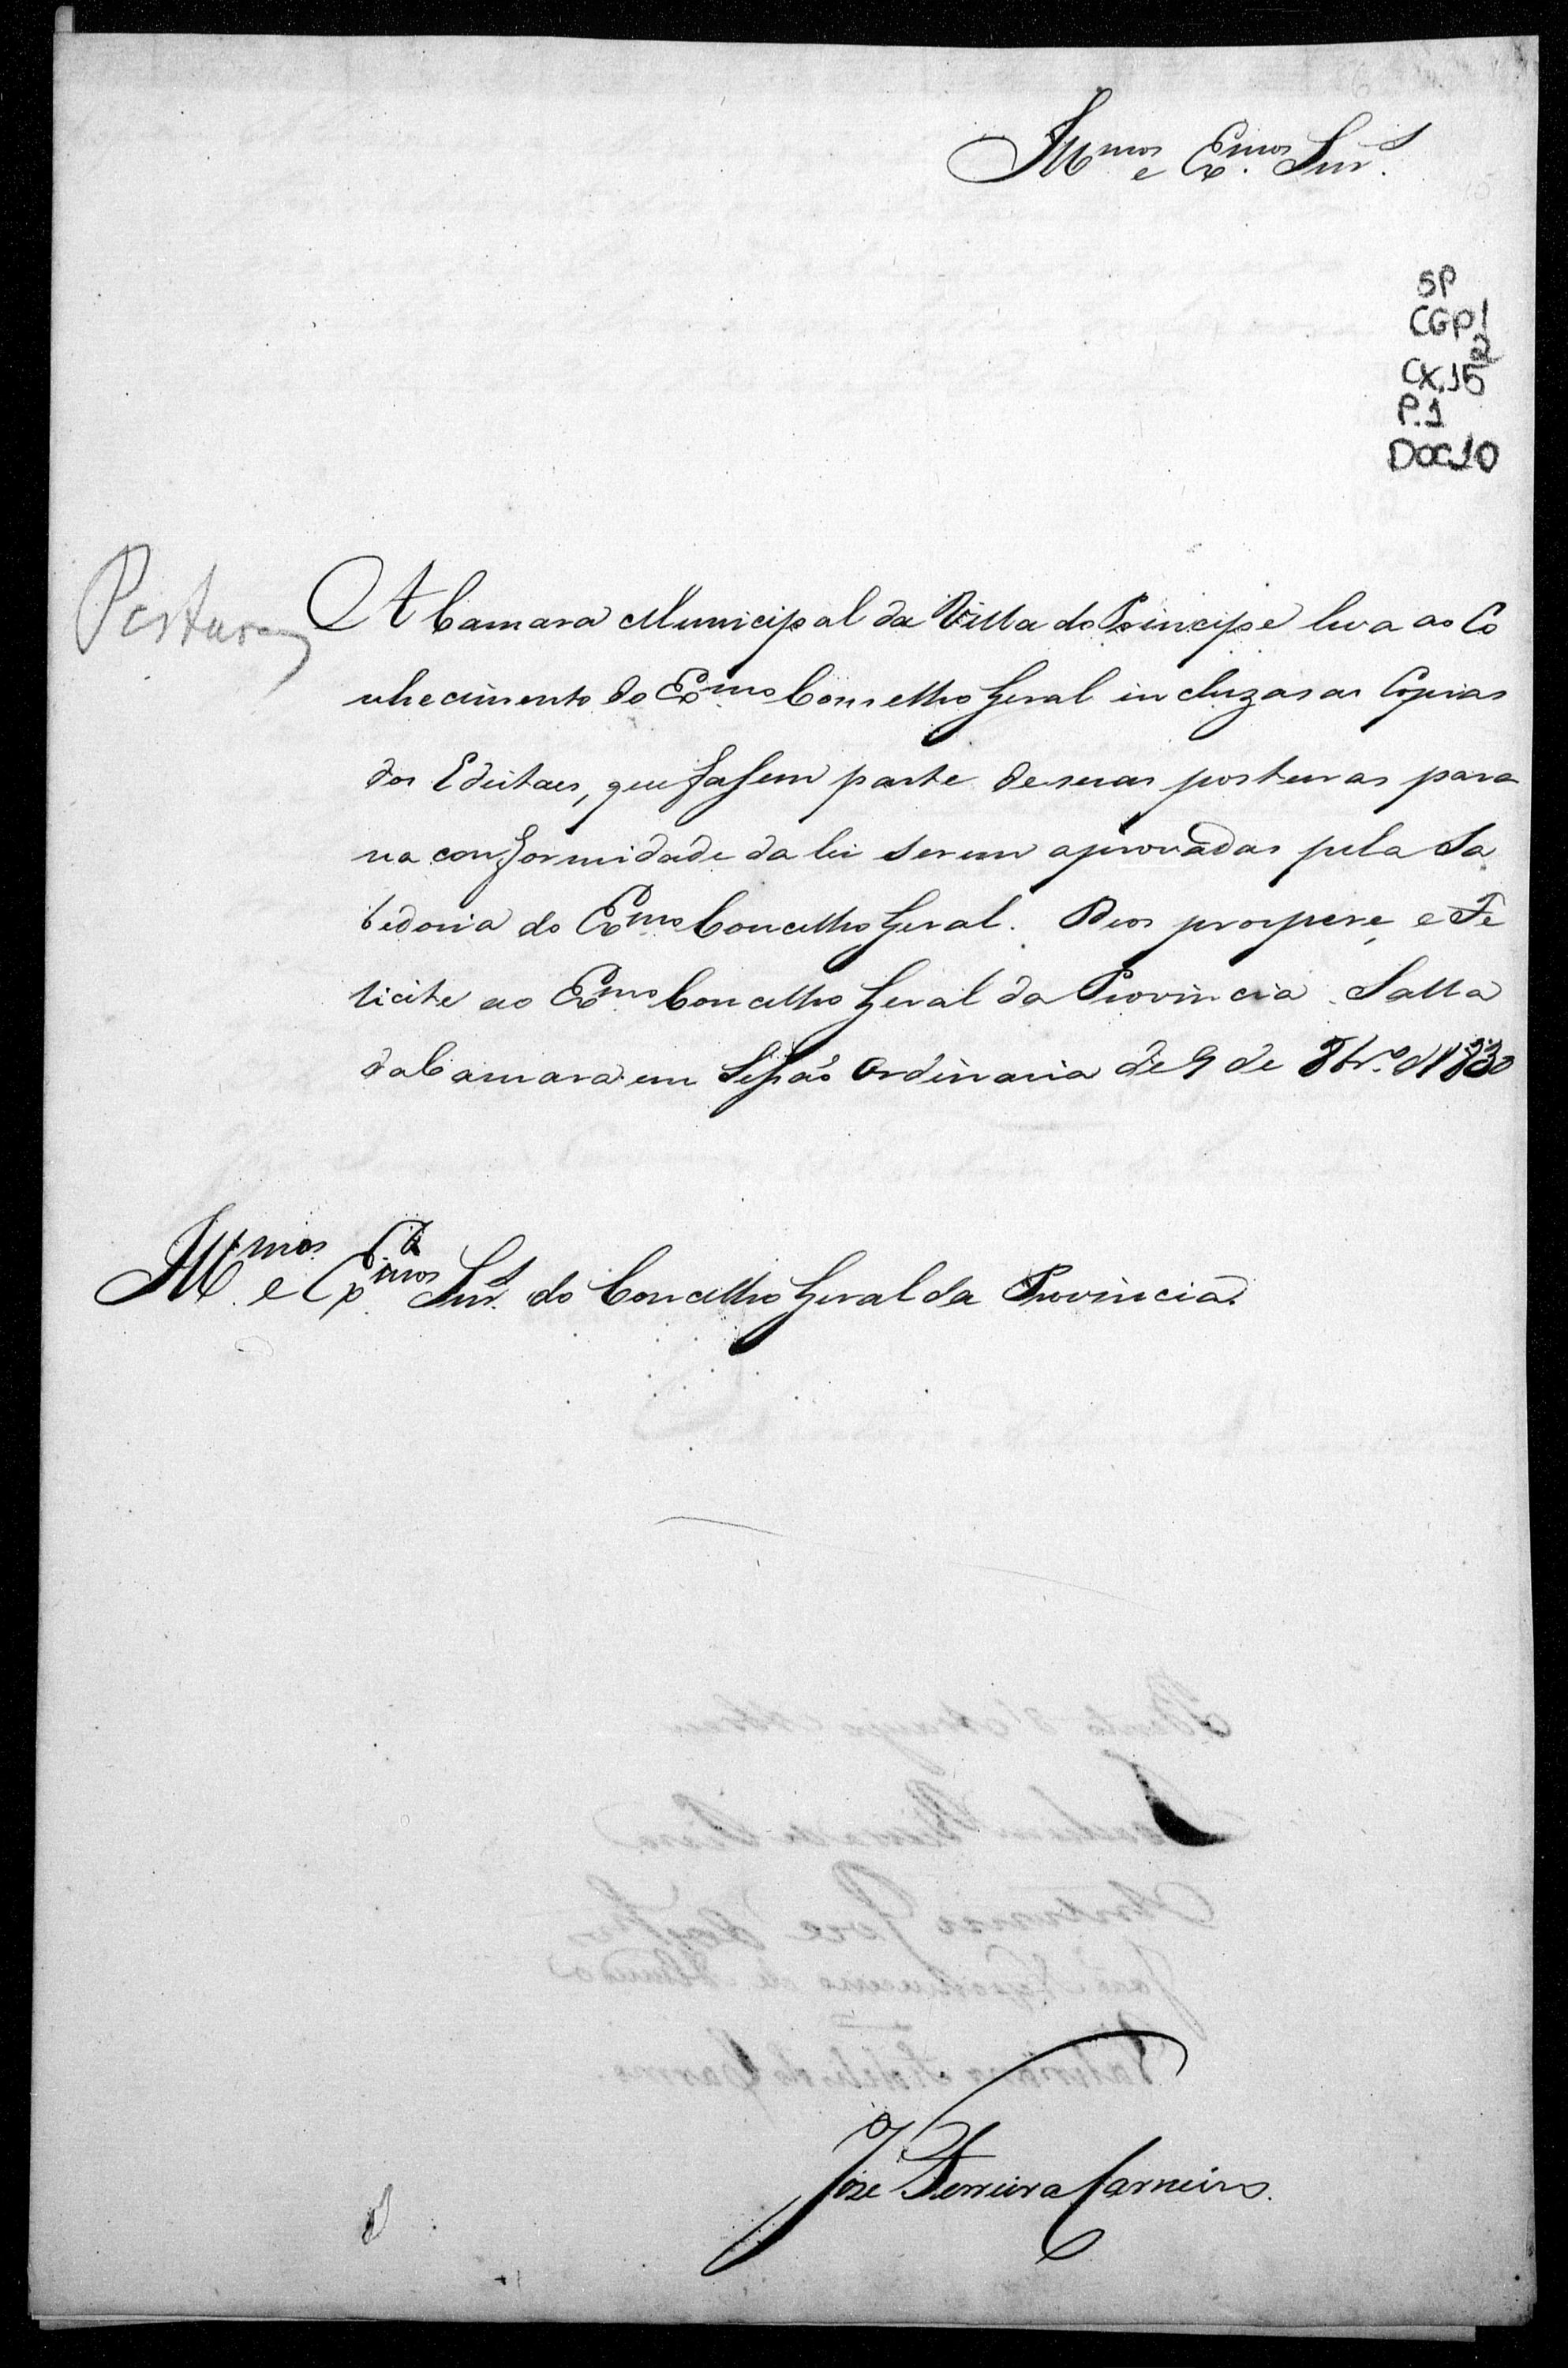 Illmos e Exmos Snrs.
SP
CGP1
CX.15 2
P.1
DOC10
Posturas
A Camara Municipal da Villa do Principe leva ao Co
nhecimento do Exmo Conselho Geral incluzas as Copias
dos Editaes, que fasem parte de suas posturas para
na conformidade da lei serem aprovadas pela Sa
bedoria do Exmo Concelho Geral. Deos prospere, e Fe
licite ao Exmo Concelho Geral da Provincia. Salla
da Camara em Sessaõ Ordinaria de 9 de 8br.o d 1830
Illmos e Exmos Snrs. do Concelho Geral da Provincia.
Joze Ferreira Carneiro.